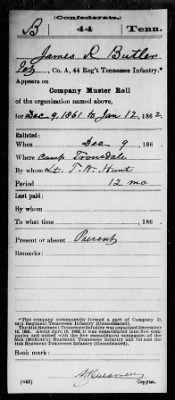 (Confederate.)
B 44 Tenn.
James R Butler
, Co. A, 44 Reg't Tennessee Infantry.*
Appears on
Company Muster Roll
of the organization named above,
for Dec 9, 1861 to Jan 12, 1862.
Enlisted:
When Dec 9, 186 .
Where Camp Trousdale
By whom Lt. T. W. Hunt
Period 12 mo
Last paid:
By whom
To what time , 186 .
Present or absent Present
Remarks:
*This company subsequently formed a part of Company
Regiment Tennessee Infantry (Consolidated).
Book mark:
(642) Copyist.